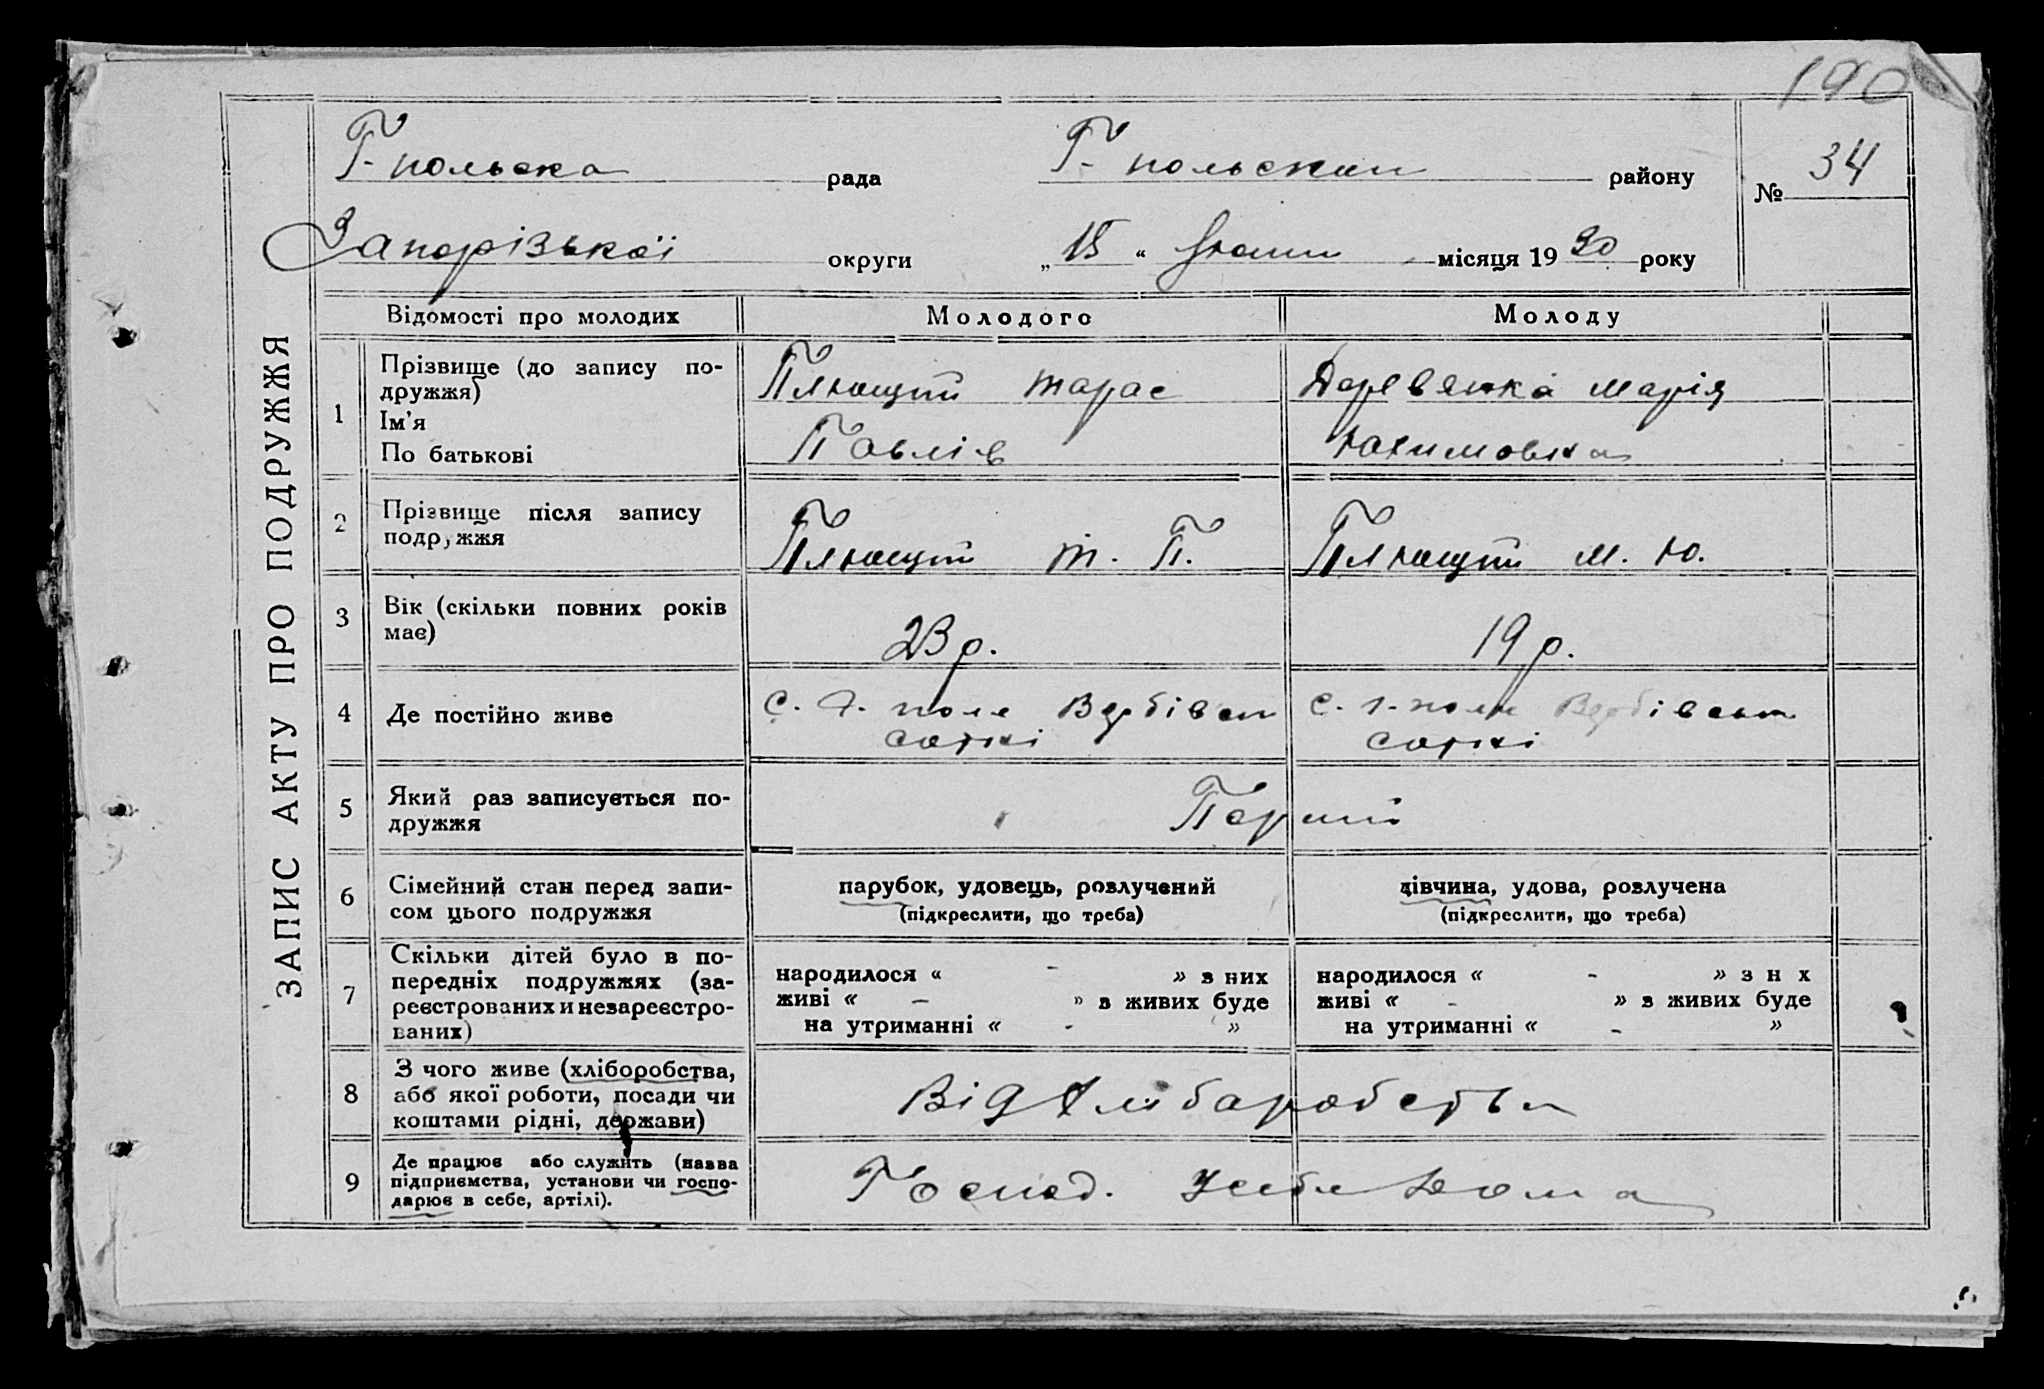 190
Г-польска рада Г-польскаи району № 34
Запорізької округи „15“ Юлии місяця 1930 року
ЗАПИС АКТУ ПРО ПОДРУЖЖЯ
Відомості про молодих Молодого Молоду
1 Прізвище (до запису по-
дружжя)
Ім'я
По батькові
Плющий Тарас
Павлів
Деревянка Марія
Юхимовна
2 Прізвище після запису
подружжя
Плющий Т. П. Плющий М. Ю.
3 Вік (скільки повних років
має)
23 р. 19 р.
4 Де постійно живе
с. Г. поле Вербівск
сотні
с. Г. поле Вербівськ
сотні
5 Який раз записується по-
дружжя
Перший
6 Сімейний стан перед запи-
сом цього подружжя
парубок, удовець, розлучений
(підкреслити, що треба)
дівчина, удова, розлучена
(підкреслити, що треба)
7 Скільки дітей було в по-
передніх подружжях (за-
реєстрованих и незареєстро-
ваних)
народилося « - » з них
живі « - » з живих буде
на утриманні « - »
народилося « - » з н х
живі « - » з живих буде
на утриманні « - »
8 З чого живе (хліборобства,
або якої роботи, посади чи
коштами рідні, держави)
Від хліборобства
9 Де працює або служить (назва
підприємства, установи чи госпо-
дарює в себе, артілі).
Господ. у себе дома